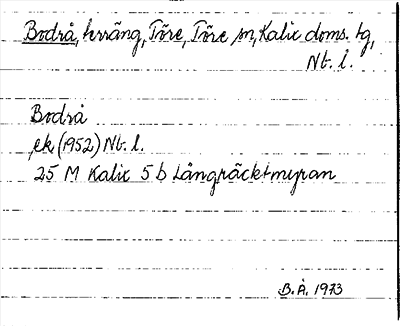 Bodrå, terräng, Töre, Töre sn, Kalix doms. tg,
Nb. l.
Bodrå
ek (1952) Nb. l.
25 M Kalix 5 b Långräcktmyran
B.Å. 1973